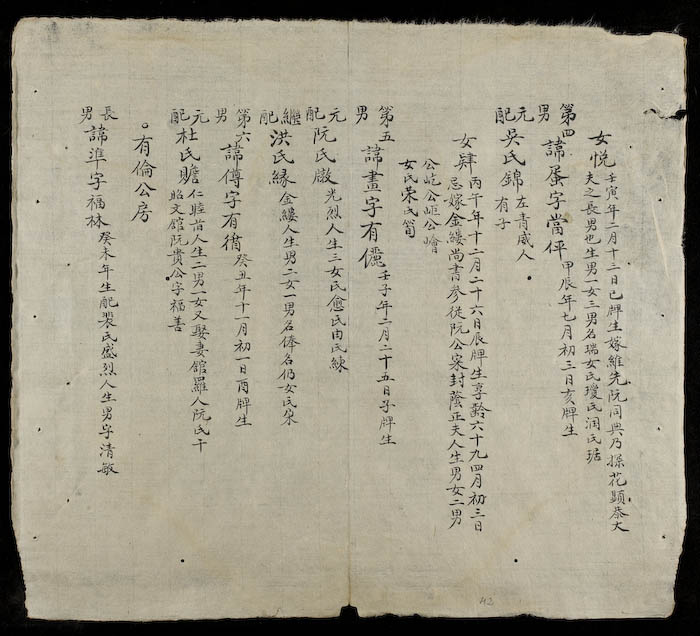 女悅壬寅年二月十三日巳牌生嫁維先阮同興乃探花顯恭大
夫之長男也生男一女三男名瑞女氏瓊氏润氏琚
第四男諱蛋字當伻甲辰年七月初三日亥牌生
元配吳氏錦左青威人有子
女肆丙午年十二月二十六日辰牌生享齡六十九四月初三日
忌嫁金縷尚書參從阮公宷封蔭正夫人生男女二男
公屹公岠公嶒
女氏荣氏筍
第五男諱晝字有儷壬子年二月二十五日子牌生
元配阮氏嗸光烈人生三女氏愈氏由氏練
繼配洪氏縁金縷人生男二女一男名俸名仍女氏宋
第六男諱傅字有偹癸丑年十一月初一日酉牌生
元配杜氏贍仁睦旧人生二男一女又娶妻館羅人阮氏干
昭文館阮貴公字福善
有倫公房
長男諱準字福林癸未年生配裴氏盛烈人生男字清敏
42